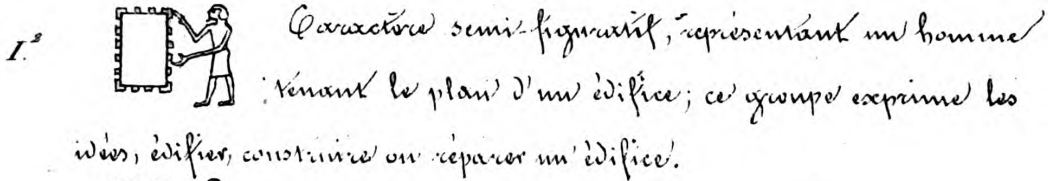 I.² Caractère semi-figuratif, représentant un homme
tenant le plan d'un édifice; ce groupe exprime les
idées, édifier, construire ou réparer un édifice.